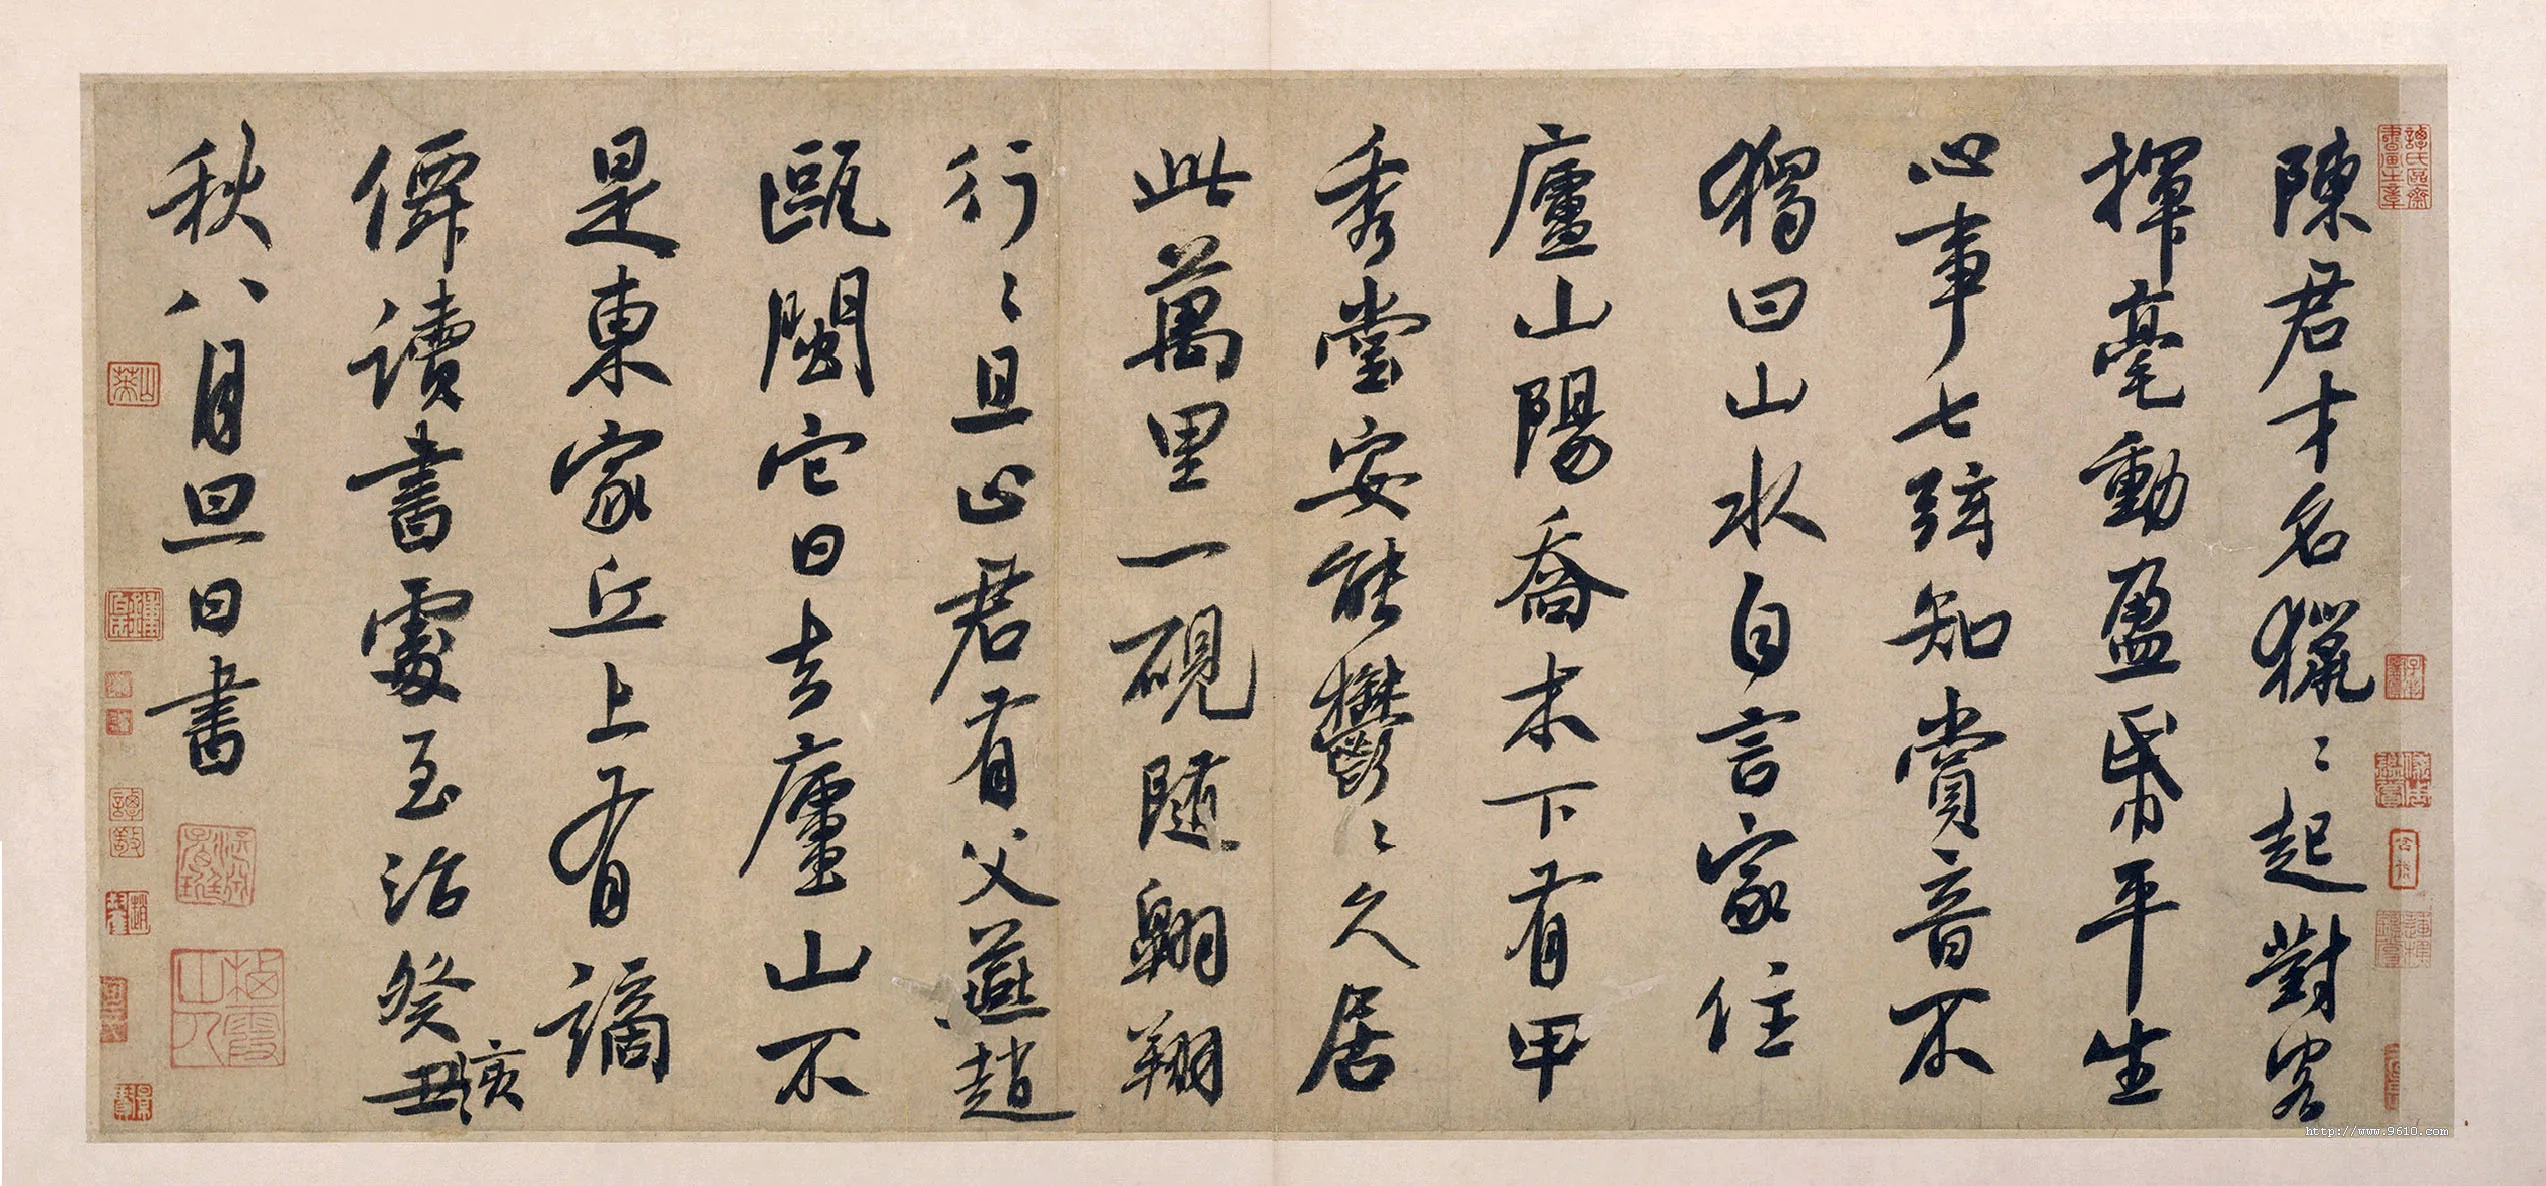 陳君才名獵〻起對客
揮毫動盈帋平生
心事七弦知賞音不
獨曰山水自言家住
廬山陽喬木下有甲
秀堂安能鬱〻久居
此萬里一硯隨翱翔
行〻且止君有父燕趙
甌閩它日去廬山不
是東家丘上有謫
僊讀書處至治癸
亥
丑
秋八月旦日書
山
http://www.9610.com